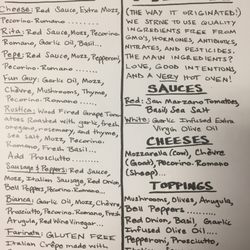 Cheese: Red Sauce, Extra Mozz,
Pecorino-Romano...
Rita: Red Sauce, Mozz, Pecorino-
Romano, Garlic Oil, Basil...
Pepe: Red Sauce, Mozz, Pepperoni,
Pecorino-Romano...
Fun Guy: Garlic Oil, Mozz,
Chèvre, Mushrooms, Thyme,
Pecorino-Romano...
Rustica: Wood Fired Grape Tom-
atoes Roasted with garlic, fresh
oregano, rosemary, and thyme,
sea salt, Mozz, Pecorino-
Romano, Fresh Basil...
Add Prosciutto...
Sausage & Peppers: Red Sauce,
Mozz, Italian Sausage, Red Onion,
Bell Peppers, Pecorino-Romano...
Bianca: Garlic Oil, Mozz, Chèvre,
Prosciutto, Pecorino-Romano, Fresh
Arugula, Red Wine Vinegar...
Farinata: GLUTEN FREE
Italian Crêpe made with
(THE WAY IT ORIGINATED!)
WE STRIVE TO USE QUALITY
INGREDIENTS FREE FROM
GMO'S, HORMONES, ANTIBIOTICS,
NITRATES, AND PESTICIDES.
THE MAIN INGREDIENTS?
LOVE, GOOD INTENTIONS,
AND A VERY HOT OVEN!
SAUCES
Red: San Marzano Tomatoes,
Basil, Sea Salt
White: Garlic Infused Extra
Virgin Olive Oil
CHEESES
Mozzarella (Cow), Chèvre
(Goat), Pecorino-Romano
(Sheep)...
TOPPINGS
Mushrooms, Olives, Arugula,
Bell Peppers,
Red Onion, Basil, Garlic
Infused Olive Oil...
Pepperoni, Prosciutto,